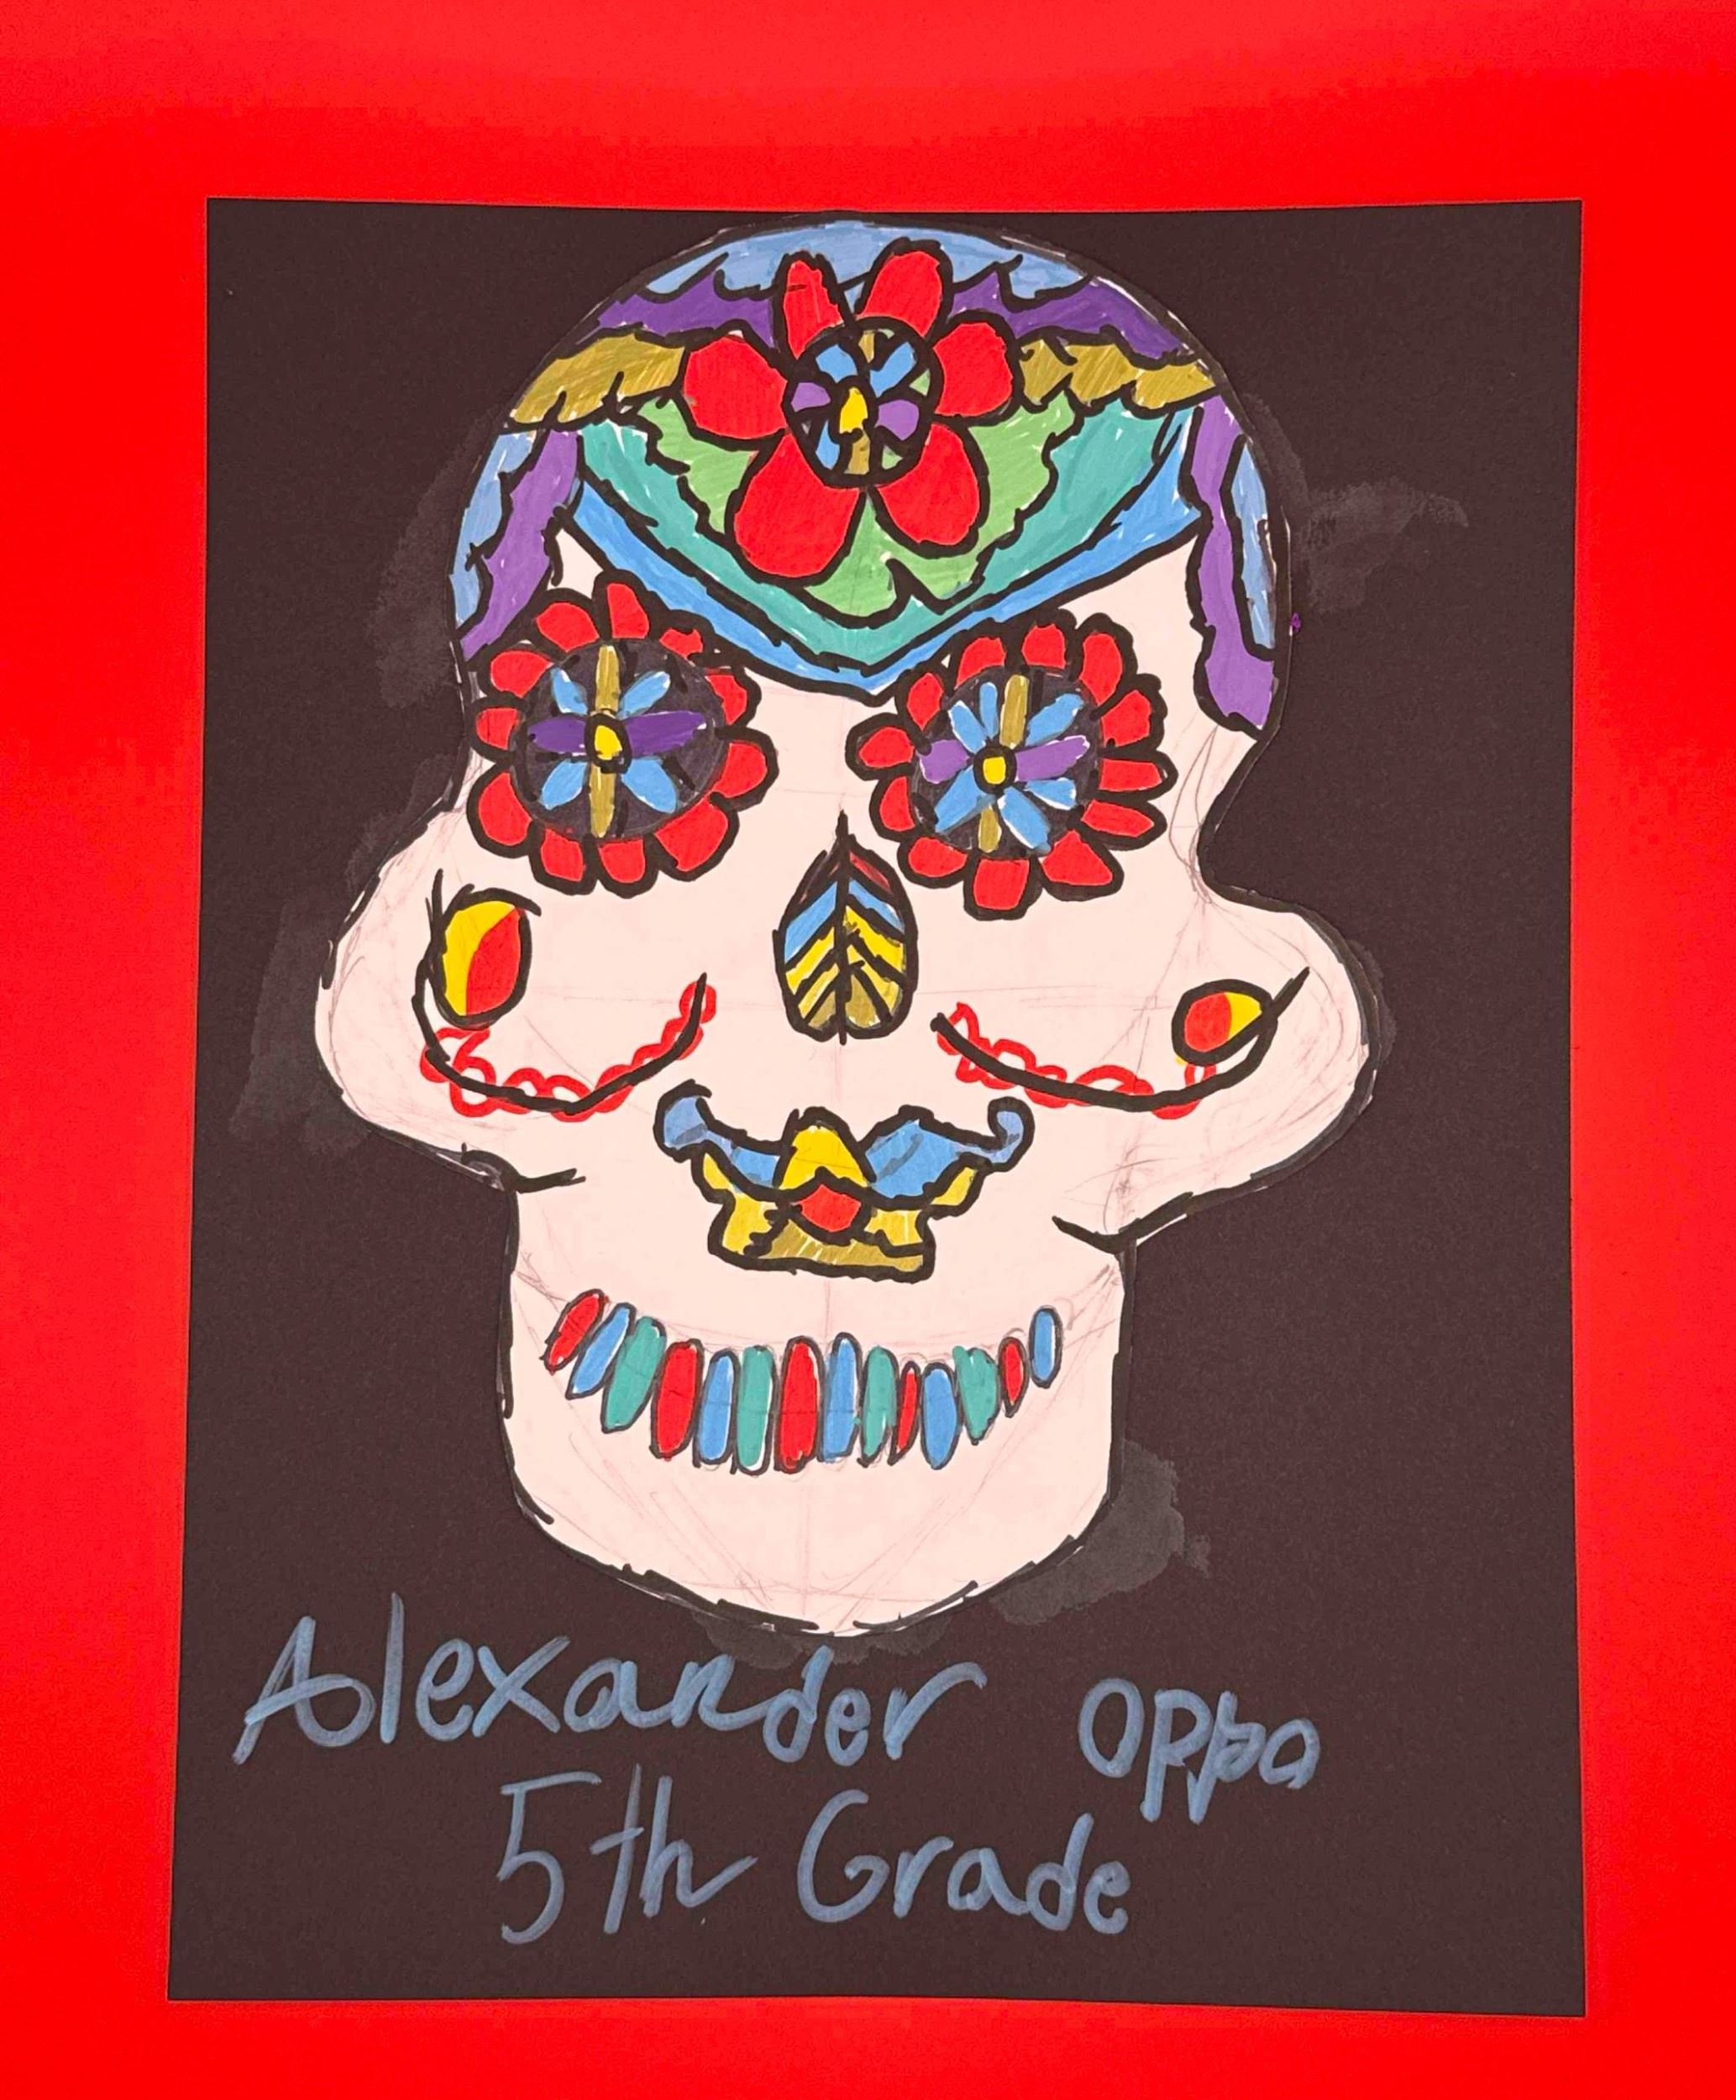 Alexander Oppa
5th Grade